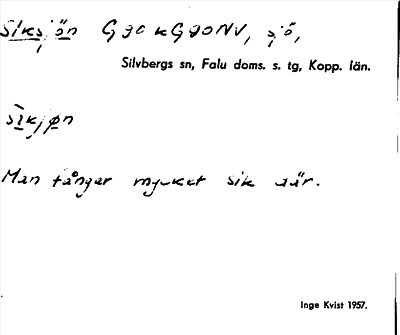 Siksjön G 90 k G 90 NV, sjö,
Silvbergs sn, Falu doms. s. tg, Kopp. län.
Man fångar mycket sik där.
Inge Kvist 1957.